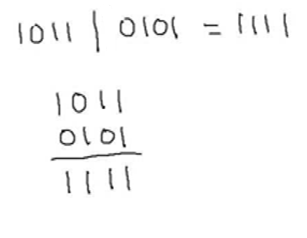 1011 | 0101 = 1111
1011
0101
1111